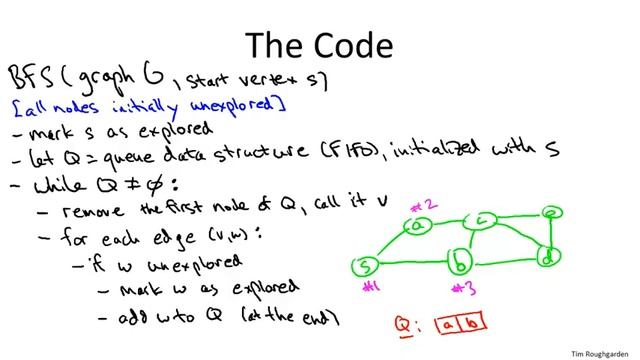 The Code
BFS(graph G, start vertex s)
[all nodes initially unexplored]
- mark s as explored
- let Q = queue data structure (FIFO), initialized with s
- while Q ≠ ∅:
- remove the first node of Q, call it v
- for each edge (v,w):
- if w unexplored
- mark w as explored
- add w to Q (at the end)
#2
a c e
s b d
#1 #3
Q: a b
Tim Roughgarden